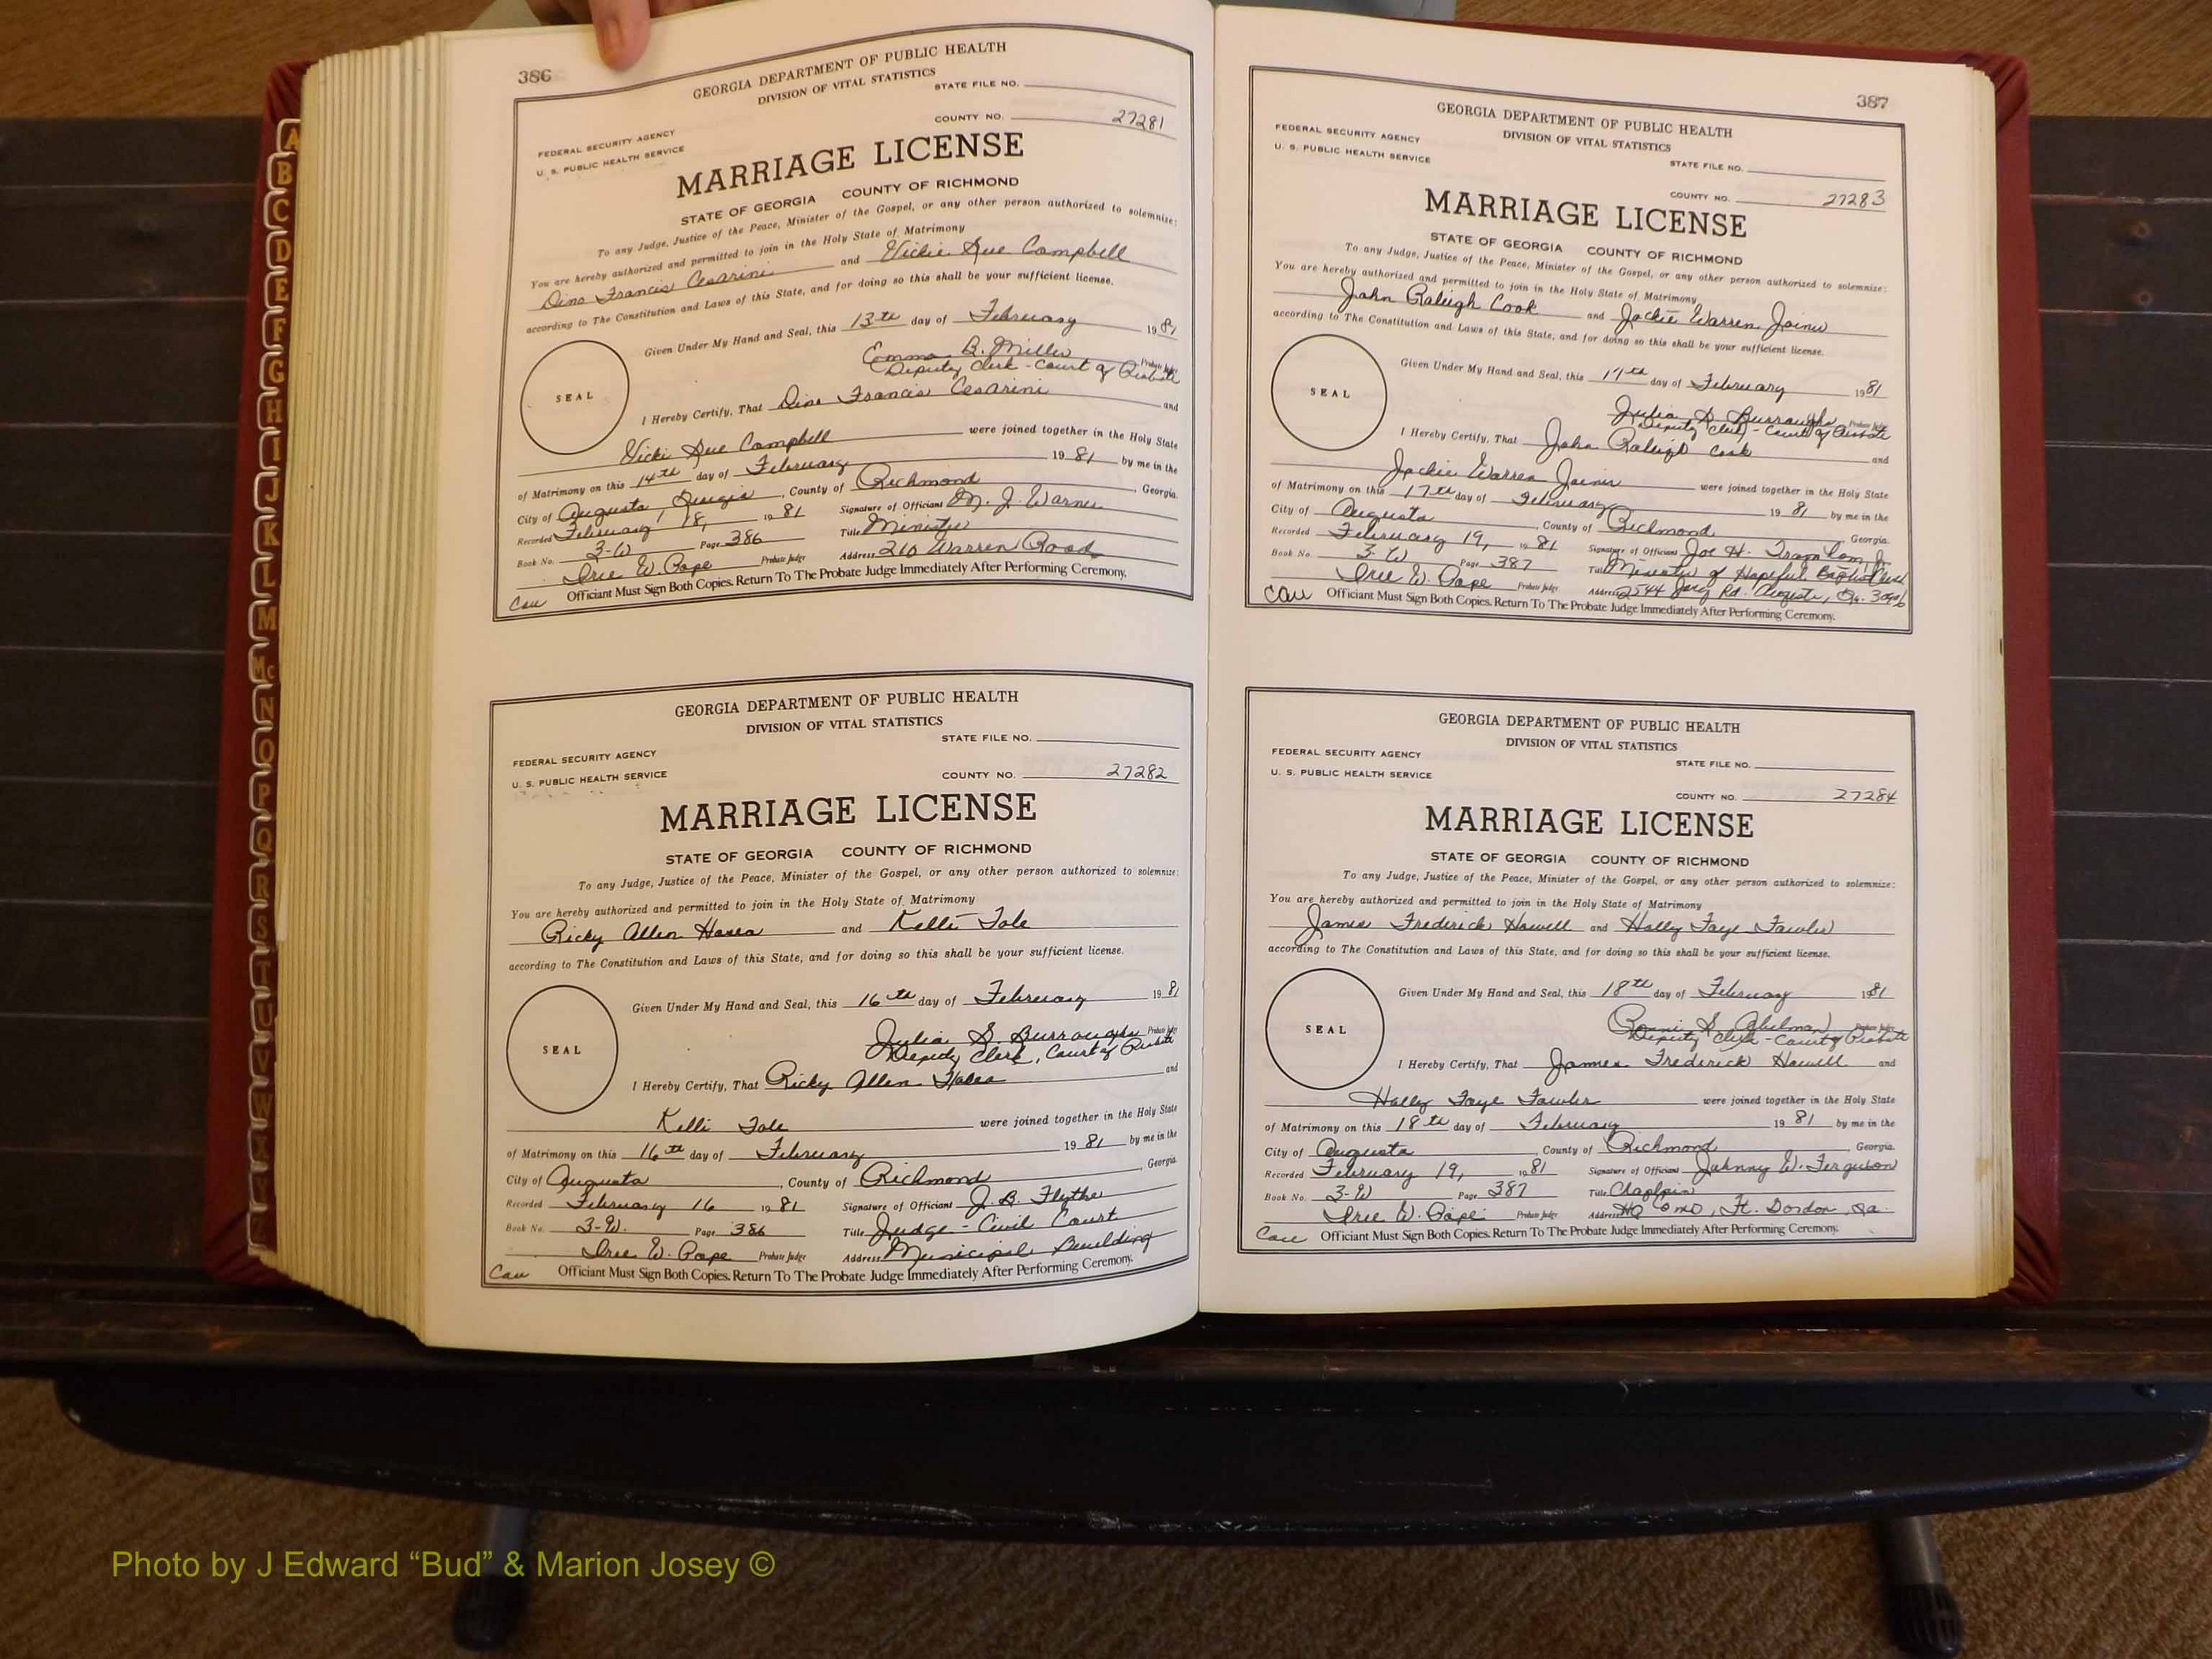 386
GEORGIA DEPARTMENT OF PUBLIC HEALTH
DIVISION OF VITAL STATISTICS
STATE FILE NO.
COUNTY NO. 27281
FEDERAL SECURITY AGENCY
U. S. PUBLIC HEALTH SERVICE
MARRIAGE LICENSE
STATE OF GEORGIA COUNTY OF RICHMOND
To any Judge, Justice of the Peace, Minister of the Gospel, or any other person authorized to solemnize:
You are hereby authorized and permitted to join in the Holy State of Matrimony
Dino Francis Cesarini and Vickie Sue Campbell
according to The Constitution and Laws of this State, and for doing so this shall be your sufficient license.
Given Under My Hand and Seal, this 13th day of February 1981
Emma B. Miller Probate Judge
Deputy Clerk - Court of Probate
SEAL
I Hereby Certify, That Dino Francis Cesarini and
Vicki Sue Campbell were joined together in the Holy State
of Matrimony on this 14th day of February 1981 by me in the
City of Augusta, Georgia, County of Richmond, Georgia.
Recorded February 18, 1981 Signature of Officiant M. J. Warner
Book No. 3-W Page 386 Title Minister
Iree W. Pope Probate Judge Address 210 Warren Road
Officiant Must Sign Both Copies. Return To The Probate Judge Immediately After Performing Ceremony.
GEORGIA DEPARTMENT OF PUBLIC HEALTH
DIVISION OF VITAL STATISTICS
STATE FILE NO.
FEDERAL SECURITY AGENCY
U. S. PUBLIC HEALTH SERVICE
COUNTY NO. 27282
MARRIAGE LICENSE
STATE OF GEORGIA COUNTY OF RICHMOND
To any Judge, Justice of the Peace, Minister of the Gospel, or any other person authorized to solemnize:
You are hereby authorized and permitted to join in the Holy State of Matrimony
Ricky Allen and Kelli Tole
according to The Constitution and Laws of this State, and for doing so this shall be your sufficient license.
Given Under My Hand and Seal, this 16th day of February 1981
Julia S. Burroughs Probate Judge
Deputy Clerk, Court of Probate
SEAL
I Hereby Certify, That Ricky Allen and
Kelli Tole were joined together in the Holy State
of Matrimony on this 16th day of February 1981 by me in the
City of Augusta, County of Richmond, Georgia.
Recorded February 16 1981 Signature of Officiant J. B. Flythe
Book No. 3-W. Page 386 Title Judge - Civil Court
Iree W. Pope Probate Judge Address Municipal Building
Officiant Must Sign Both Copies. Return To The Probate Judge Immediately After Performing Ceremony.
387
GEORGIA DEPARTMENT OF PUBLIC HEALTH
DIVISION OF VITAL STATISTICS
FEDERAL SECURITY AGENCY
U. S. PUBLIC HEALTH SERVICE
STATE FILE NO.
COUNTY NO. 27283
MARRIAGE LICENSE
STATE OF GEORGIA COUNTY OF RICHMOND
To any Judge, Justice of the Peace, Minister of the Gospel, or any other person authorized to solemnize:
You are hereby authorized and permitted to join in the Holy State of Matrimony
John Raleigh Cook and Jackie Warren Joiner
according to The Constitution and Laws of this State, and for doing so this shall be your sufficient license.
Given Under My Hand and Seal, this 17th day of February 1981
Julia S. Burroughs Probate Judge
Deputy Clerk - Court of Probate
SEAL
I Hereby Certify, That John Raleigh Cook and
Jackie Warren Joiner were joined together in the Holy State
of Matrimony on this 17th day of February 1981 by me in the
City of Augusta, County of Richmond, Georgia.
Recorded February 19, 1981 Signature of Officiant Joe H.
Book No. 3-W Page 387 Title Minister of Hopeful Baptist Church
Iree W. Pope Probate Judge Address 2544 Rd. Augusta, Ga.
Officiant Must Sign Both Copies. Return To The Probate Judge Immediately After Performing Ceremony.
GEORGIA DEPARTMENT OF PUBLIC HEALTH
DIVISION OF VITAL STATISTICS
FEDERAL SECURITY AGENCY
U. S. PUBLIC HEALTH SERVICE
STATE FILE NO.
COUNTY NO. 27284
MARRIAGE LICENSE
STATE OF GEORGIA COUNTY OF RICHMOND
To any Judge, Justice of the Peace, Minister of the Gospel, or any other person authorized to solemnize:
You are hereby authorized and permitted to join in the Holy State of Matrimony
James Frederick Howell and Holly Faye Fowler
according to The Constitution and Laws of this State, and for doing so this shall be your sufficient license.
Given Under My Hand and Seal, this 18th day of February 1981
Bonni S. Abelman Probate Judge
Deputy Clerk - Court of Probate
SEAL
I Hereby Certify, That James Frederick Howell and
Holly Faye Fowler were joined together in the Holy State
of Matrimony on this 18th day of February 1981 by me in the
City of Augusta, County of Richmond, Georgia.
Recorded February 19, 1981 Signature of Officiant Johnny W. Ferguson
Book No. 3-W Page 387 Title Chaplain
Iree W. Pope Probate Judge Address HQ Ft. Gordon, Ga.
Officiant Must Sign Both Copies. Return To The Probate Judge Immediately After Performing Ceremony.
A
B
C
D
E
F
G
H
I
J
K
L
M
Mc
N
O
P
Q
R
S
T
U
V
W
Photo by J Edward “Bud” & Marion Josey ©